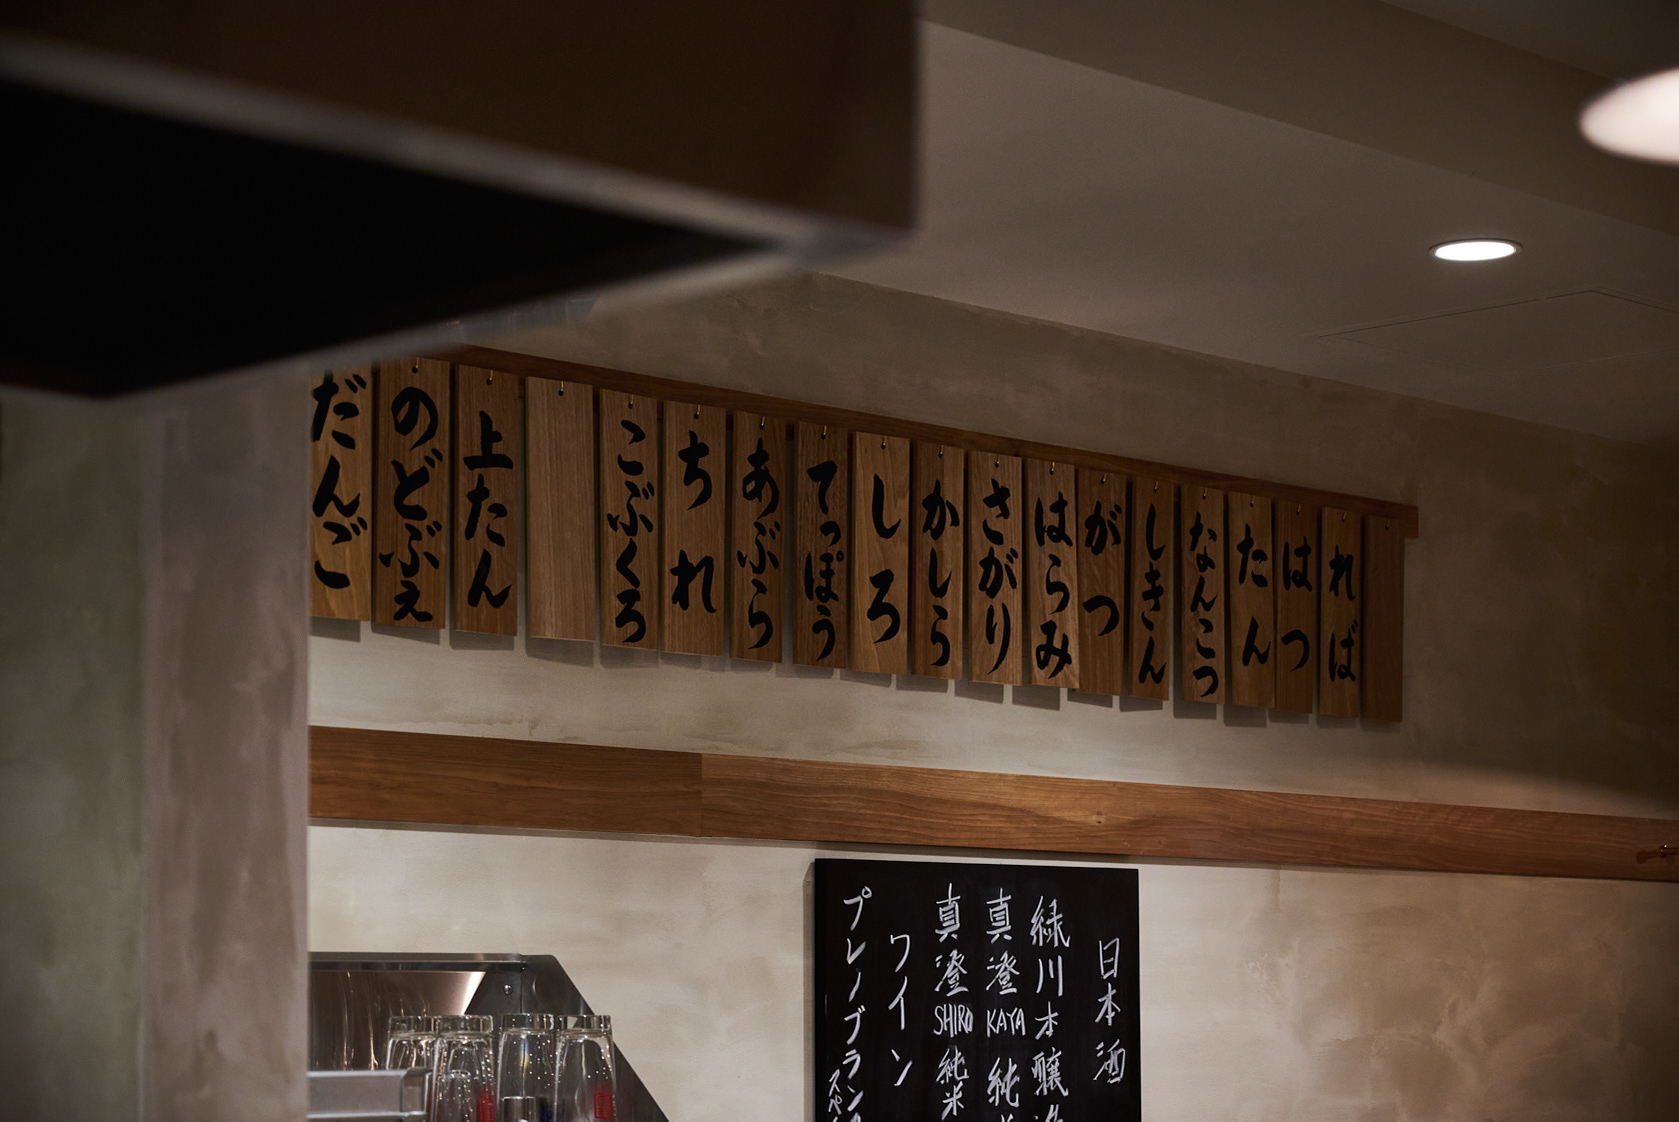 ればぁ
はつ
たん
なんこつ
しきん
がつ
はらみ
さがり
かしら
しろ
てっぽう
あぶら
ちれ
こぶくろ
上たん
のどぶえ
だんご
日本酒
緑川本醸造
真澄KAYA純米
真澄SHIRO純米
ワイン
プレノブラン